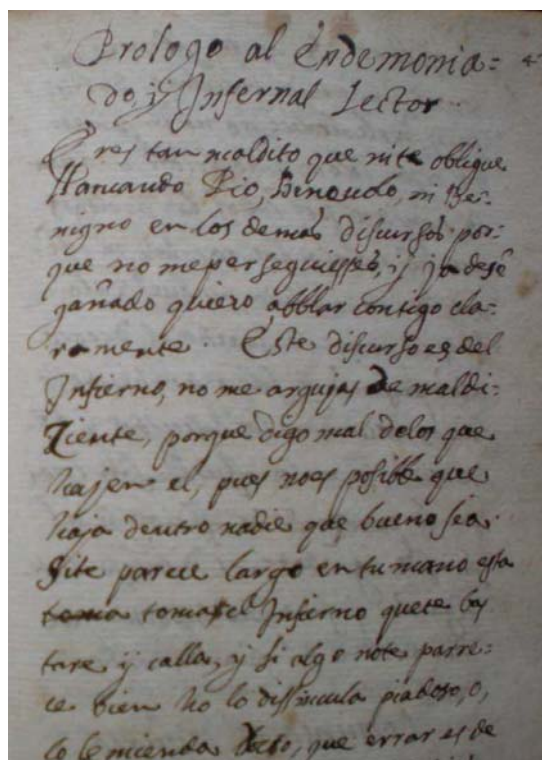 Prologo al Endemonia=
do, y Infernal Lector
4
Eres tan maldito que ni te obligue
llamandо Pio, Benevolo, ni Be=
nigno en los demas discursos por=
que no me perseguiesses, y ya desē
gañado quiero abblar contigo cla=
ramente. Este discurso es del
Infierno, no me arguyas de maldi=
ziente, porque digo mal de los que
hay en el, pues no es posible que
haja dentro nadie que bueno sea.
Si te parece largo en tu mano esta
toma el Infierno que te bas
tare y calla, y si algo no te parre=
ce bien no lo dissimula piadoso, o,
lo emienda docto, que errar es de